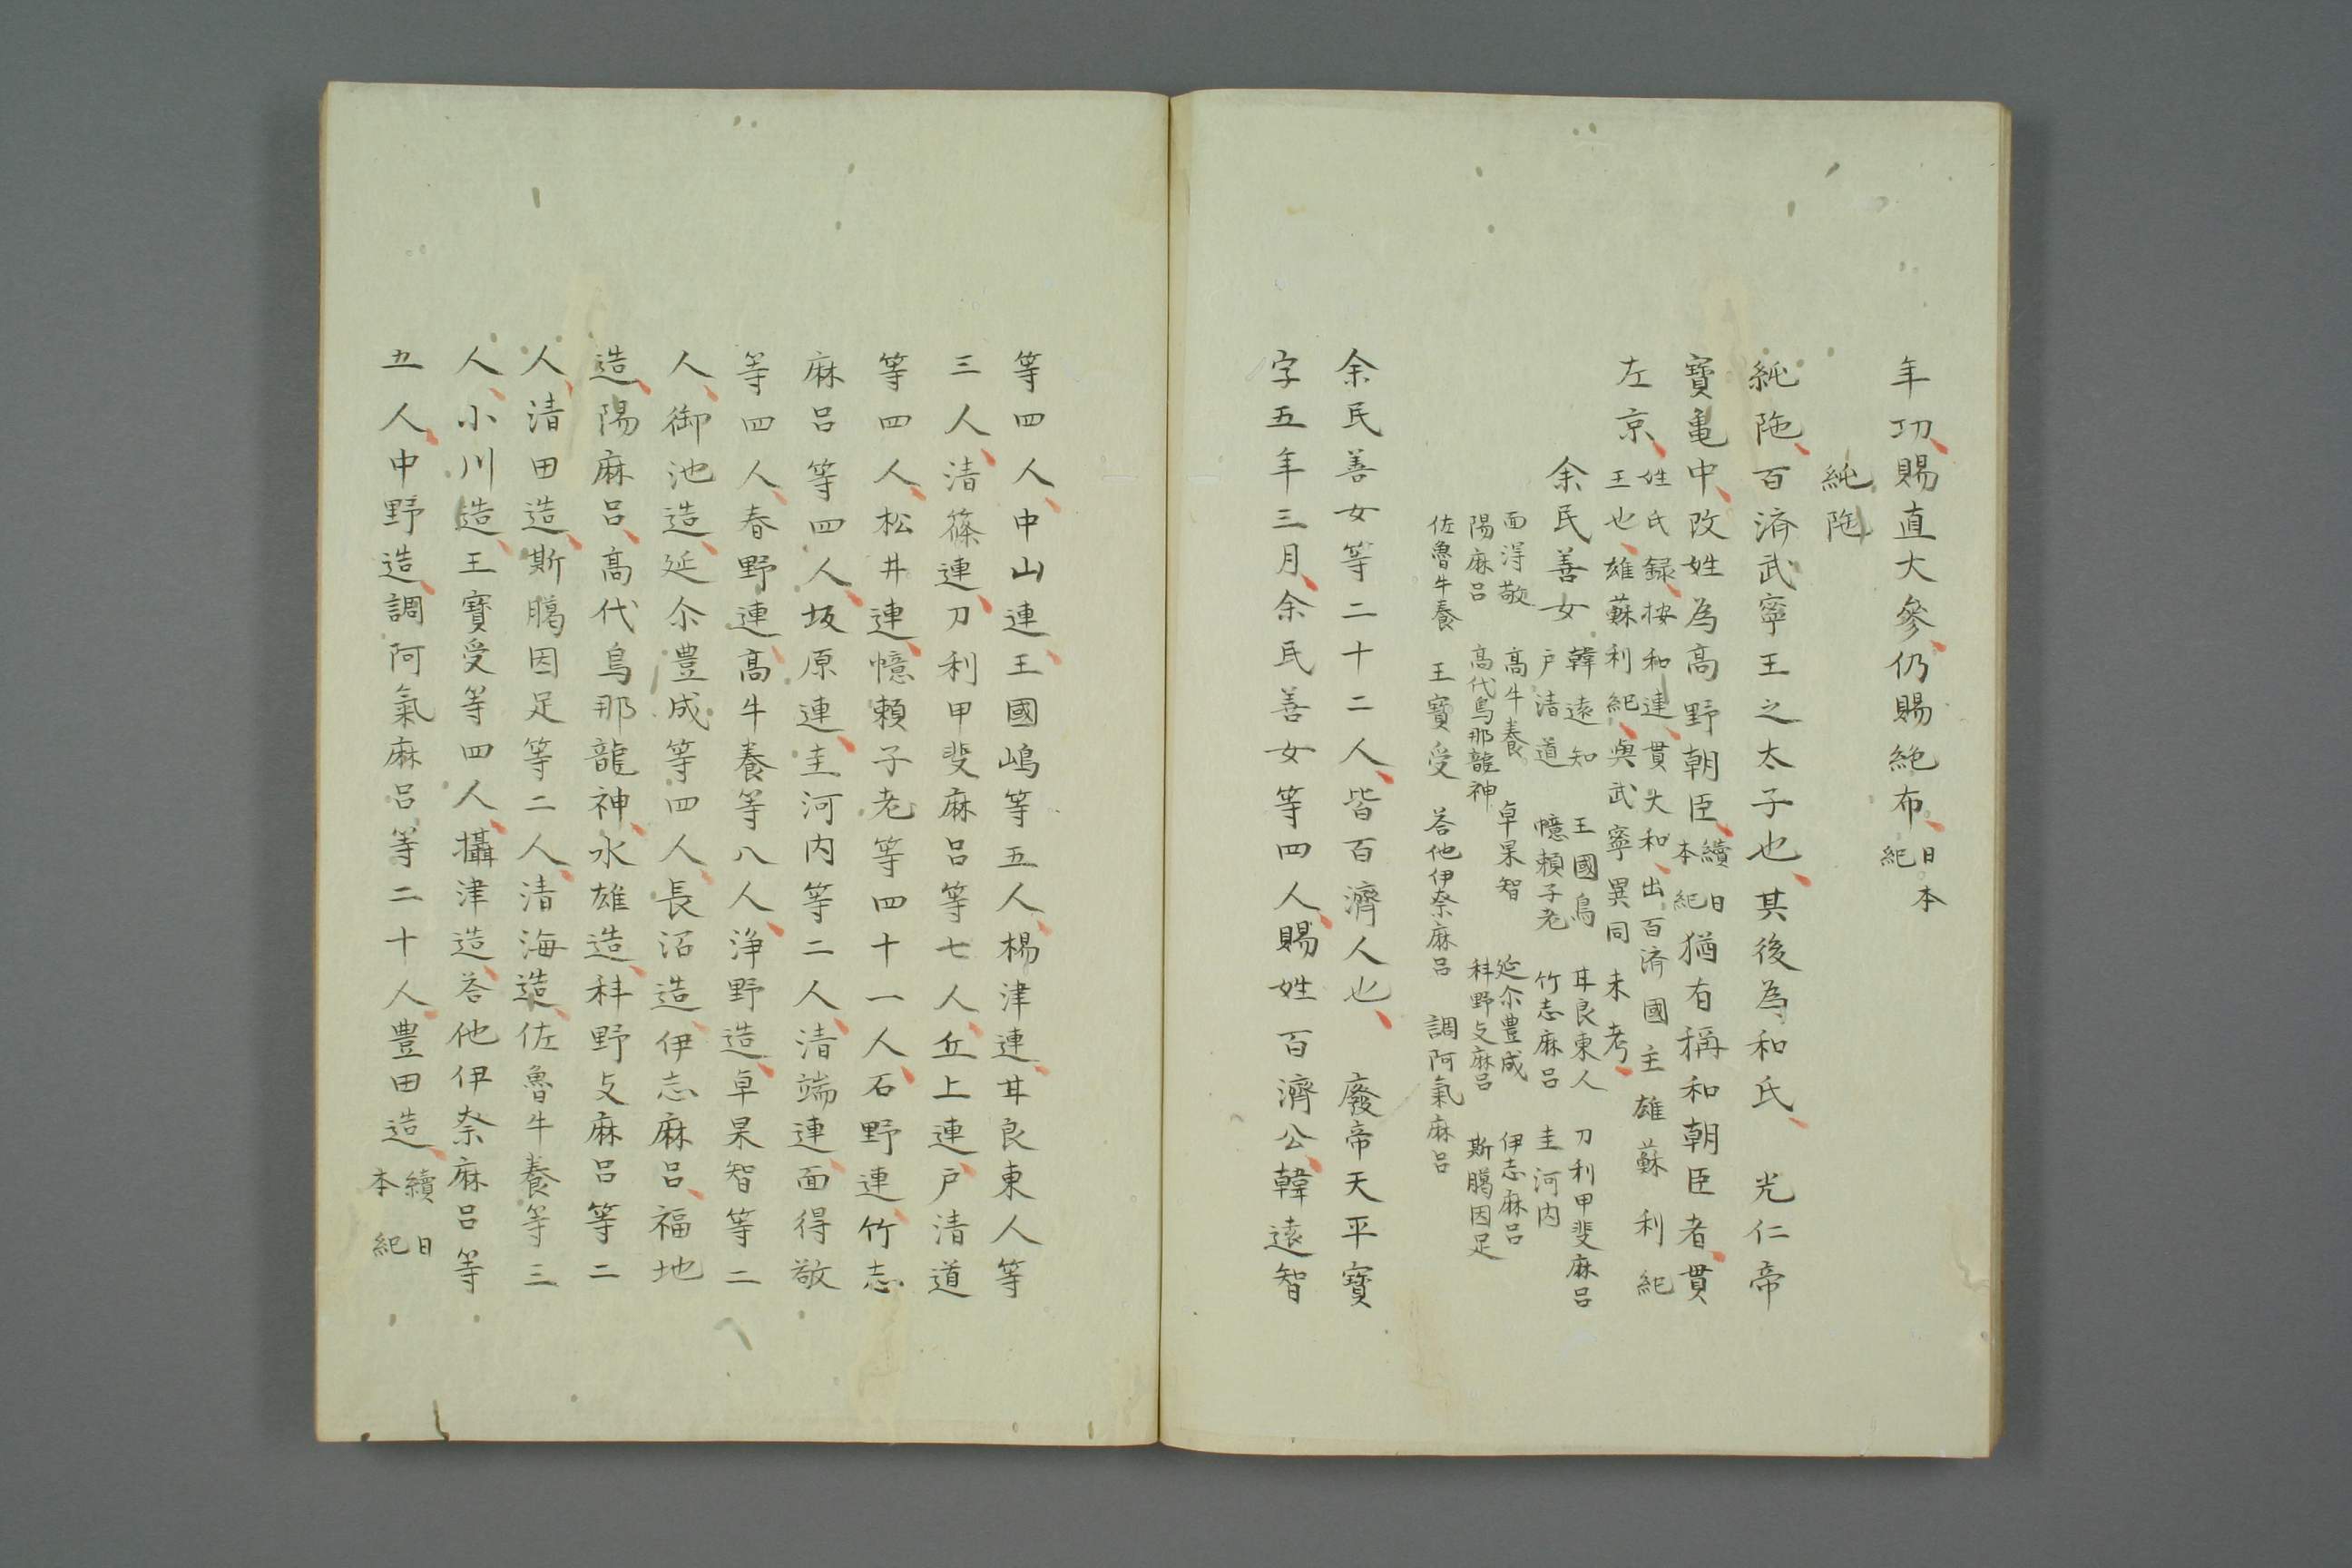 年功賜直大參仍賜絁布日本紀
純陁
純陁百済武寧王之太子也其後為和氏 光仁帝
寶亀中改姓為高野朝臣續日本紀猶有稱和朝臣者貫
左京姓氏録按和連貫大和出百済國主雄蘇利紀
王也雄蘇利紀與武寧異同未考
余民善女 韓遠知 王國烏 甘良東人 刀利甲斐麻呂
戸清道 憶頼子老 竹志麻呂 圭河内
面淂敬 高牛養 卓杲智 延尒豊成 伊志麻呂
陽麻呂 高代烏那龍神 科野𠬧麻呂 斯﨟因足
佐魯牛養 王寶受 荅他伊奈麻呂 調阿氣麻呂
余民善女等二十二人皆百濟人也 廢帝天平寶
字五年三月余民善女等四人賜姓百濟公韓遠智
等四人中山連王國嶋等五人楊津連甘良東人等
三人清篠連刀利甲斐麻呂等七人丘上連戸清道
等四人松井連憶頼子老等四十一人石野連竹志
麻呂等四人坂原連圭河内等二人清端連面得敬
等四人春野連高牛養等八人浄野造卓杲智等二
人御池造延尒豊成等四人長沼造伊志麻呂福地
造陽麻呂高代烏那龍神水雄造科野𠬧麻呂等二
人清田造斯﨟因足等二人清海造佐魯牛養等三
人小川造王寶受等四人攝津造荅他伊奈麻呂等
五人中野造調阿氣麻呂等二十人豊田造續日本紀